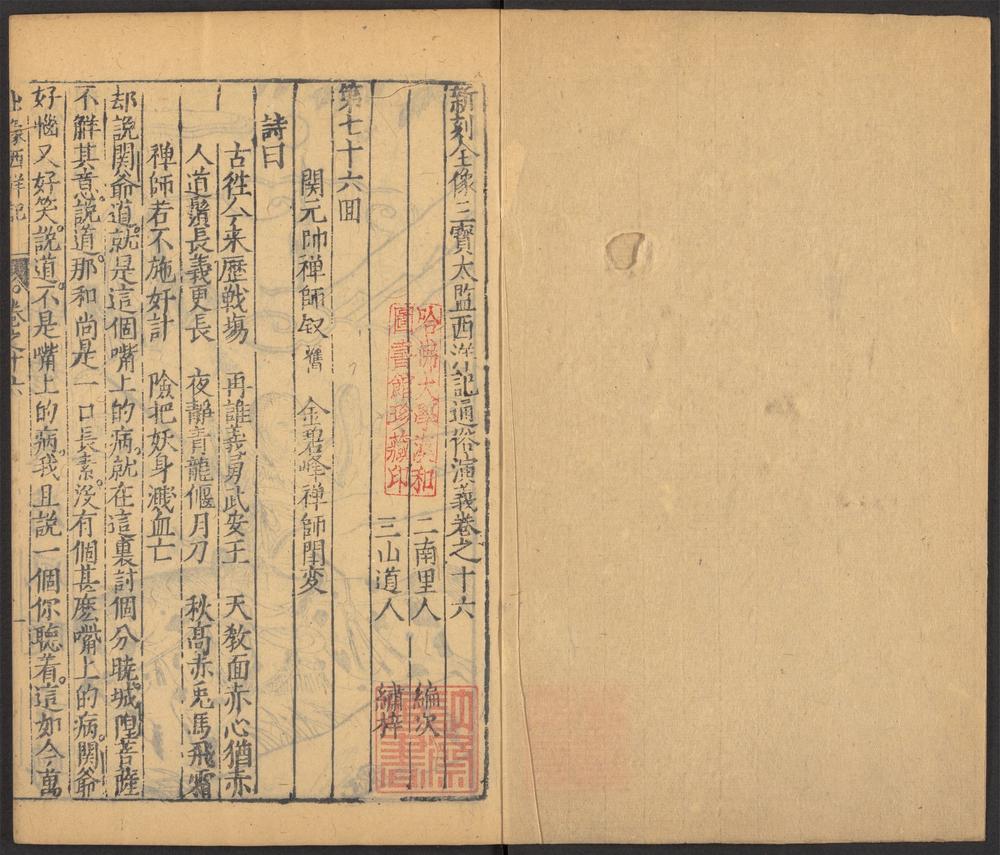 新刻全像三寶太監西洋記通俗演義卷之十六
二南里人 編次
三山道人 繡梓
哈佛大學漢和
圖書館珍藏印
第七十六囬
関元帥禅師叙舊 金碧峰禅師閗変
詩曰
古徃今来歴戦塲 再誰義勇武安王 天教面赤心猶赤
人道鬚長義更長 夜静青龍偃月刀 秋髙赤兎馬飛霜
禅師若不施奸計 險把妖身濺血亡
却說関爺道。就是這個嘴上的病。就在這裏討個分曉。城隍菩薩
不觧其意。說道。那和尚是一口長素。没有個甚麽嘴上的病。関爺
好惱又好笑。說道。不是嘴上的病。我且說一個你聴着。這如今萬
像西洋記 卷之十六